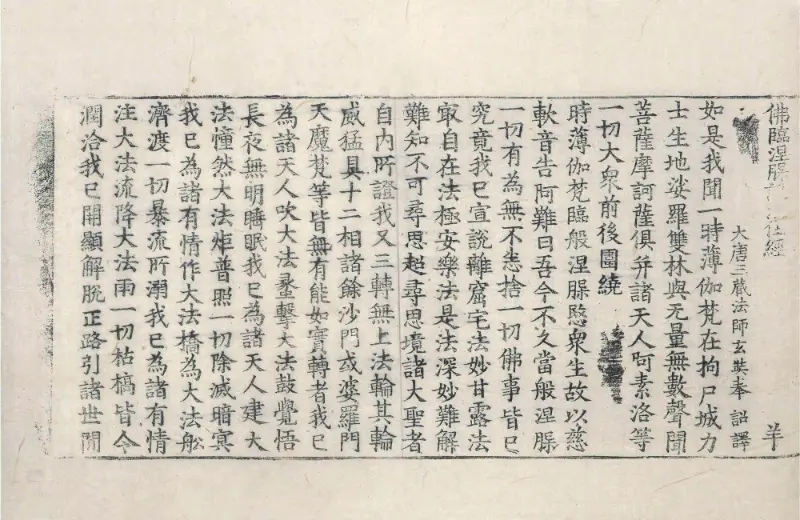 佛臨涅槃 住經 羊
大唐三藏法師玄奘奉 詔譯
如是我聞一時薄伽梵在拘尸城力
士生地娑羅雙林與无量無數聲聞
菩薩摩訶薩俱并諸天人阿素洛等
一切大衆前後圍繞
時薄伽梵臨般涅槃愍衆生故以慈
軟音告阿難曰吾今不久當般涅槃
一切有為無不悉捨一切佛事皆已
究竟我已宣說離窟宅法妙甘露法
㝡自在法極安樂法是法深妙難解
難知不可尋思超尋思境諸大聖者
自內所證我又三轉無上法輪其輪
威猛具十二相諸餘沙門或婆羅門
天魔梵等皆無有能如實轉者我已
為諸天人吹大法䗍擊大法鼓覺悟
長夜無明睡眠我已為諸天人建大
法幢然大法炬普照一切除滅暗冥
我已為諸有情作大法橋為大法船
濟渡一切暴流所溺我已為諸有情
注大法流降大法雨一切枯槁皆令
潤洽我已開顯解脫正路引諸世間